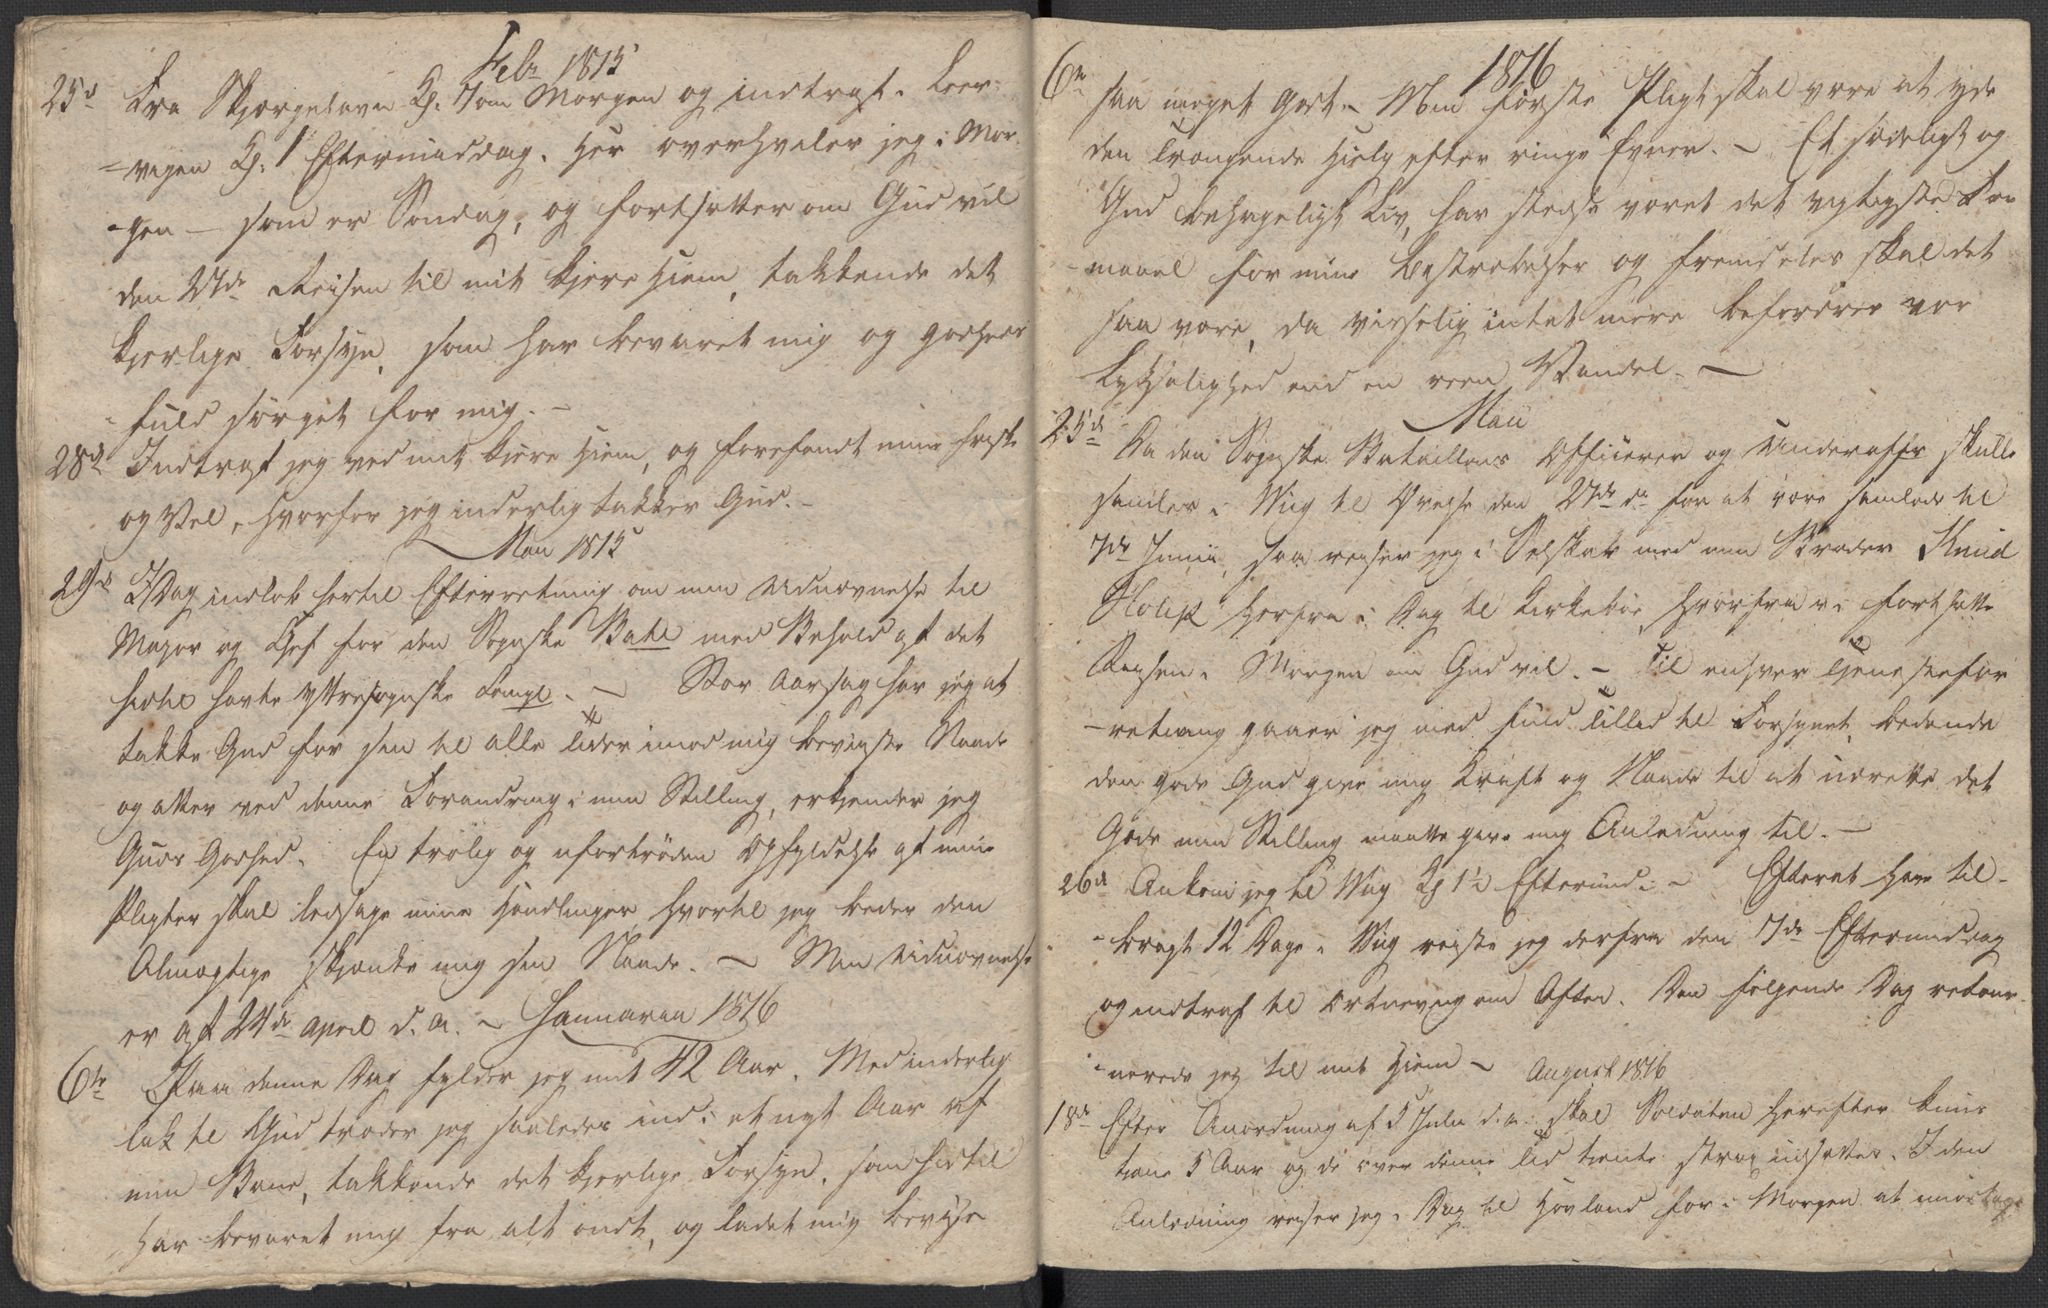 Febr 1815
25d Fra Skjærgehavn Kl. 7 om Morgen og indtraf i Leer-
=vigen Kl. 1 Eftermiddag. Her overhviler jeg i Mor
-gen – som er Søndag, og fortsætter om Gud vil
den 27de Reisen til mit kjere Hiem, takkende det
kjerlige Forsyn, som har bevaret mig og godheds
fuld sørget for mig. –
28d Indtraf jeg ved mit kjere Hiem, og forefandt mine friske
og Vel, hvorfor jeg inderlig takker Gud. –
Maii 1815
29de I Dag indløb hertil Efterretning om min Udnævnelse til
Major og Chef for den Sognske Batl med Behold af det
hidtil havte Yttresognske Compl. – Stor Aarsag har jeg at
takke Gud for sin til alle Tider imod mig beviiste Naade
og atter ved denne Forandring i min Stilling, erkjender jeg
Guds Godhed. En trolig og ufortrøden Opfyldelse af mine
Pligter skal ledsage mine Handlinger hvortil jeg beder den
Almægtige skjænke mig sin Naade. – Min Udnævnelse
er af 24de April d. A. –
Januarii 1816
6te Paa denne Dag fylder jeg mit 42 Aar. Med inderlig
tak til Gud træder jeg saaledes ind i et nyt Aar af
min Bane, takkende det kjerlige Forsyn, som hidtil
har bevaret mig fra alt ondt, og ladet mig beviise
1816
6te saa meget Godt. – Min første Pligt skal være at yde
den Trængende Hielp efter ringe Evner. – Et sædeligt og
Gud behageligt Liv, har stedse været det vigtigste For
-maal for mine Bestræbelser og fremdeles skal det
saa være, da visselig intet mere befordrer vor
Lyksalighed end en reen Vandel. –
Maii
25de Da den Sognske Bataillons Officerer og Underoffr skulle
samles i Wiig til Øvelse den 27de ds for at være samlede til
7de Junii, saa reiser jeg i Selskab med min Broder Knud
herfra i Dag til Kirkebøe, hvorfra vi fortsætte
Reisen i Morgen om Gud vil. – Til enhver Tjenestefor
-retning gaaer jeg med fuld Tillid til Forsynet, bedende
den gode Gud give mig Kraft og Naade til at udrette det
Gode min Stilling maatte give mig Anledning til. –
26d Ankom jeg til Wiig Kl 1½ Eftermd. – Efterat have til-
-bragt 12 Dage i Wiig reiste jeg derfra den 7de Eftermiddag
og indtraf til Ortnevig om Aften. Den følgende Dag retour
-nerede jeg til mit Hiem –
August 1816
18de Efter Anordning af 5 Julii d. A. skal Soldaten herefter kuns
tiene 5 Aar og de over denne Tid tiente strax udsættes. I den
Anledning reiser jeg i Dag til Høyland for i Morgen at